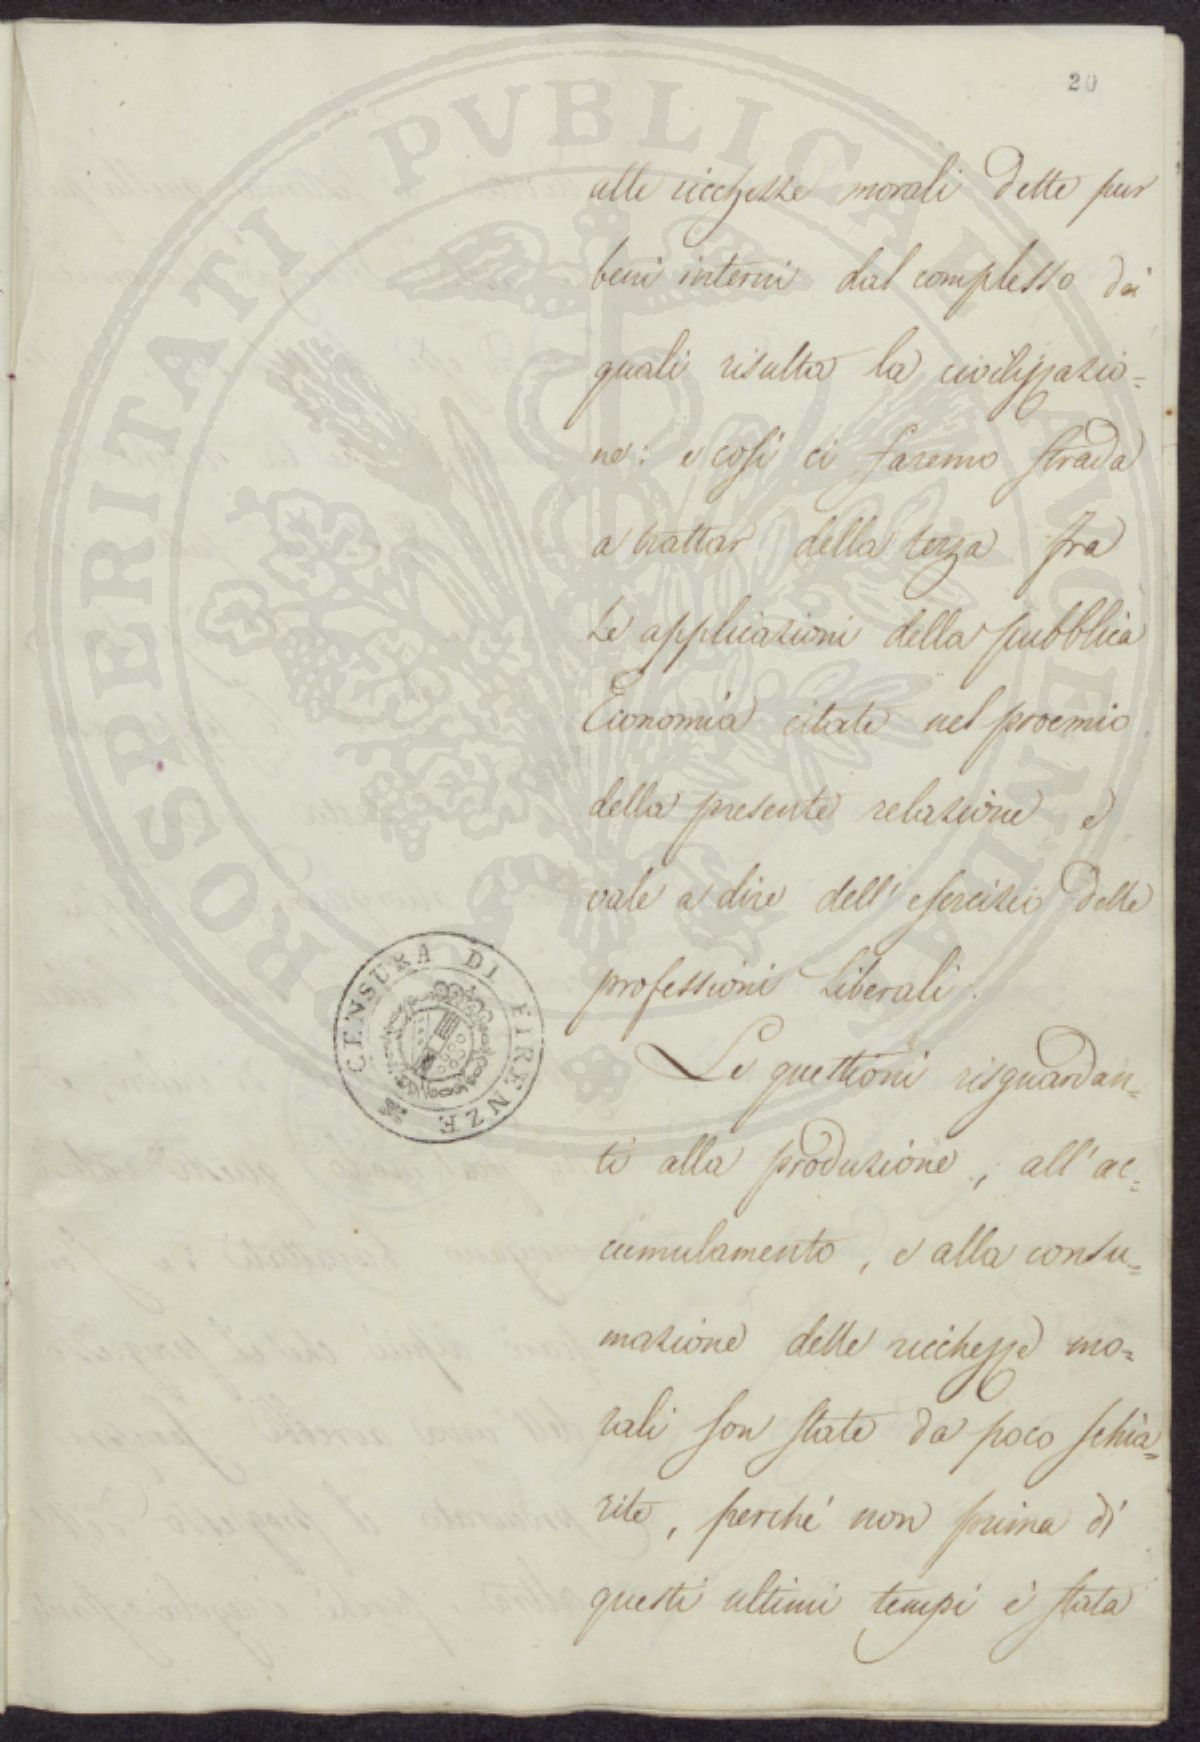 20
PROSPERITATI PVBLICAE AVGENDAE
alle ricchezze morali dette pur
beni interni dal complesso dei
quali risulta la civilizzazio=
ne: e così ci faremo strada
a trattar della terza fra
Le applicazioni della pubblica
Economia citate nel proemio
della presente relazione e
vale a dire dell' esercizio delle
professioni Liberali.
CENSURA DI FIRENZE
Le questioni risguardan=
ti alla produzione, all'ac=
cumulamento, e alla consu=
mazione delle ricchezze mo=
rali son state da poco schia=
rite, perché non prima di
questi ultimi tempi è stata